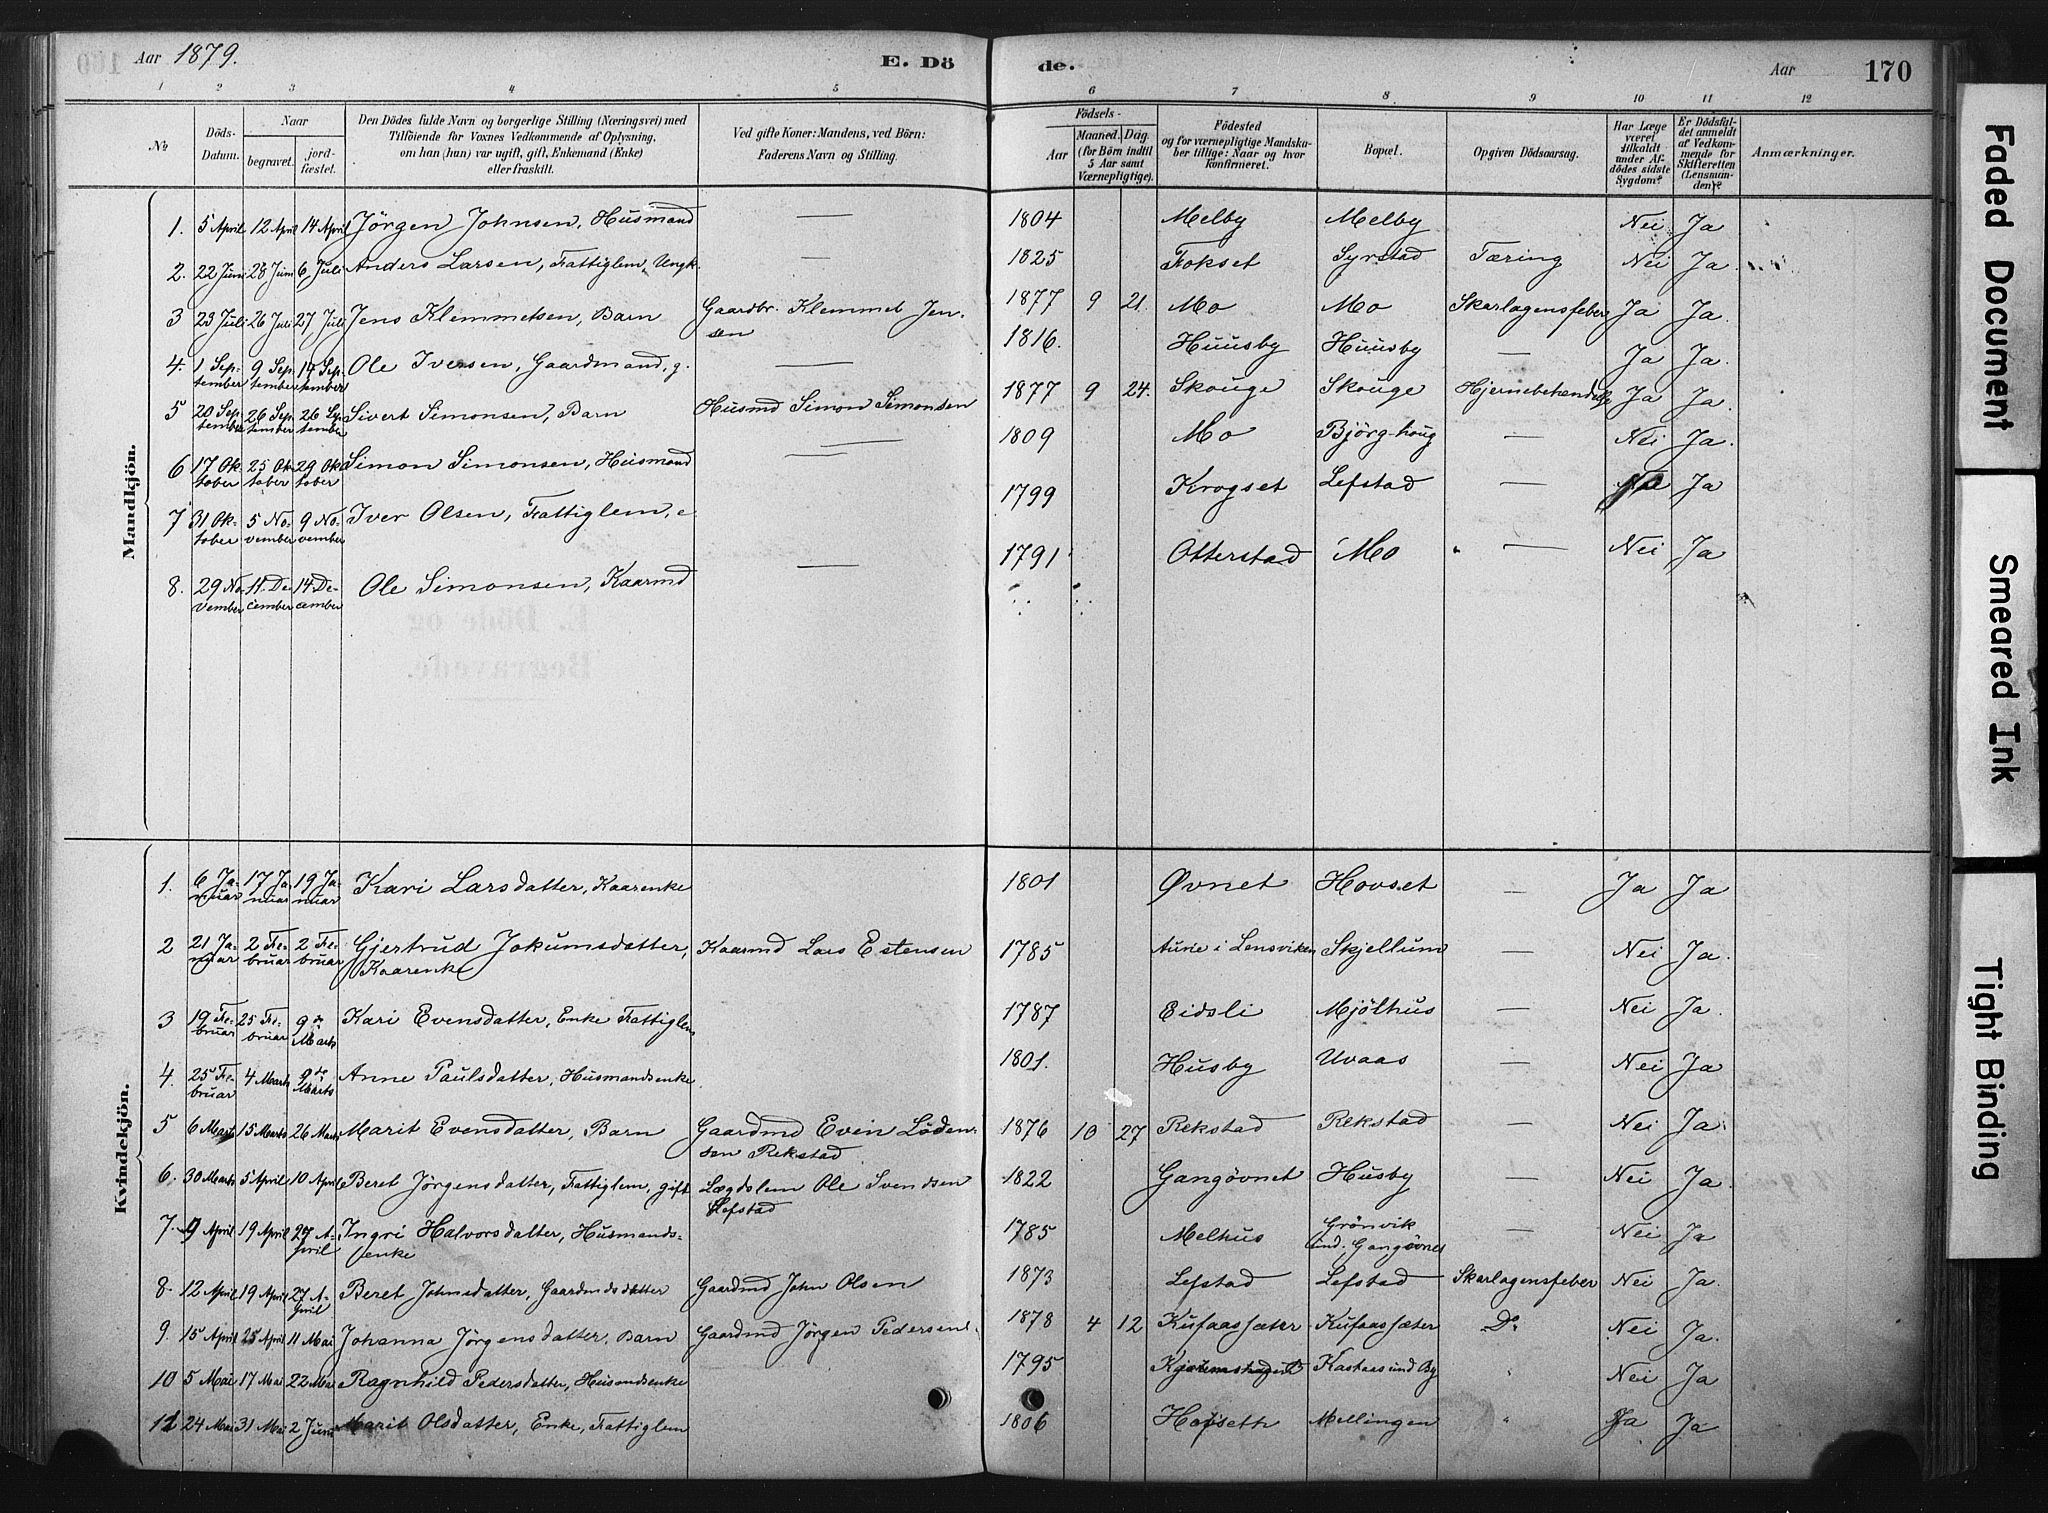 Aar 1879. E. Dö de. Aar 170
1 2 3 4 5 6 7 8 9 10 11 12
№
Döds-Datum.
Naar
begravet.
jordfæstet.
Den Dödes fulde Navn og borgerlige Stilling (Næringsvei) med
Tilföiende for Voxnes Vedkommende af Oplysning,
om han (hun) var ugift, gift, Enkemand (Enke)
eller fraskilt.
Ved gifte Koner: Mandens, ved Börn:
Faderens Navn og Stilling.
Födsels-
Aar
Maaned. Dag.
(for Börn indtil
5 Aar samt
Værnepligtige).
Födested
og for værnepligtige Mandska-
ber tillige: Naar og hvor
konfirmeret.
Bopæl.
Opgiven Dödsaarsag.
Har Læge
været
tilkaldt
under Af-
dödes sidste
Sygdom?
Er Dödsfal-
det anmeldt
af Vedkom-
mende for
Skifteretten
(Lensman-
den)?
Anmærkninger.
Mandkjön.
1. 5 April 12 April 14 April Jörgen Johnsen, Husmand — 1804 Melby Melby Nei Ja
2. 22 Juni 28 Juni 6 Juli Anders Larsen, Fattiglem, Ungk. — 1825 Fokset Syrstad Tæring Nei Ja
3 23 Juli 26 Juli 27 Juli Jens Klemmetsen, Barn Gaardbr. Klemmet Jensen 1877 9 21. Mo Mo Skarlagensfeber Ja Ja.
4. 1 September 9 September 14 September Ole Iversen, Gaardmand, g. — 1816. Huusby Huusby — Ja Ja.
5 20 September 26 September 26 September Sivert Simonsen, Barn Husmd Simon Simonsen 1877 9 24. Skouge Skouge Ja Ja.
6 17 Oktober 25 Oktober 29 Oktober Simon Simonsen, Husmand — 1809 Mo Björg-houg — Nei Ja.
7 31 Oktober 5 November 9 November Iver Olsen, Fattiglem, e. — 1799 Krogset Lefstad — Nei Ja
8. 29 November 11 December 14 December Ole Simonsen, Kaarmd — 1791 Otterstad Mo — Nei Ja
E. Döde og
Begravede.
Kvindekjön.
1. 6 Januar 17 Januar 19 Januar Kari Larsdatter, Kaarenke 1801 Øvnet Hovset — Ja Ja
2 21 Januar 2 Februar 2 Februar Gjertrud Jokumsdatter, Kaarenke Kaarmd Lars Estensen 1785 Aune i Lensviken Skjellum — Nei Ja.
3 19 Februar 25 Februar 9de Marts Kari Evensdatter, Enke Fattiglem 1787 Eidsli Mjölhus — Nei Ja.
4. 25 Februar 4 Marts 9de Marts Anne Paulsdatter, Husmandsenke. 1801. Husby Uvaas — Nei Ja
5 6 Marts 15 Marts 26 Marts Marit Evensdatter, Barn Gaardmd Even Lödensen Rekstad 1876 10 27 Rekstad Rekstad — Nei Ja.
6. 30 Marts 5 April 10 April Beret Jörgensdatter, Fattiglem, gift Lægdslem Ole Svendsen Lefstad 1822 Gangövnet Husby — Nei Ja.
7. 9 April 19 April 27 April Ingri Halvorsdatter, Husmandsenke 1785 Melhus Grönvik und. Gangövnet — Nei Ja
8. 12 April 19 April 27 April Beret Johnsdatter, Gaardmdsdatter Gaardmd John Olsen 1873 Lefstad Lefstad Skarlagensfeber Nei Ja.
9. 15 April 25 April 11 Mai Johanna Jörgensdatter, Barn Gaardmd Jörgen Pedersen 1878 4 12 Kufaassæter Kufaassæter Do Nei Ja.
10 5 Mai 17 Mai 22 Mai Ragnhild Pedersdatter, Husmdsenke 1795 Kastaas und By Nei Ja
11 24 Mai 31 Mai 2 Juni Marit Olsdatter, Enke, Fattiglem 1806 Hofseth Mellingen " Ja Ja
Faded Document
Smeared Ink
Tight Binding